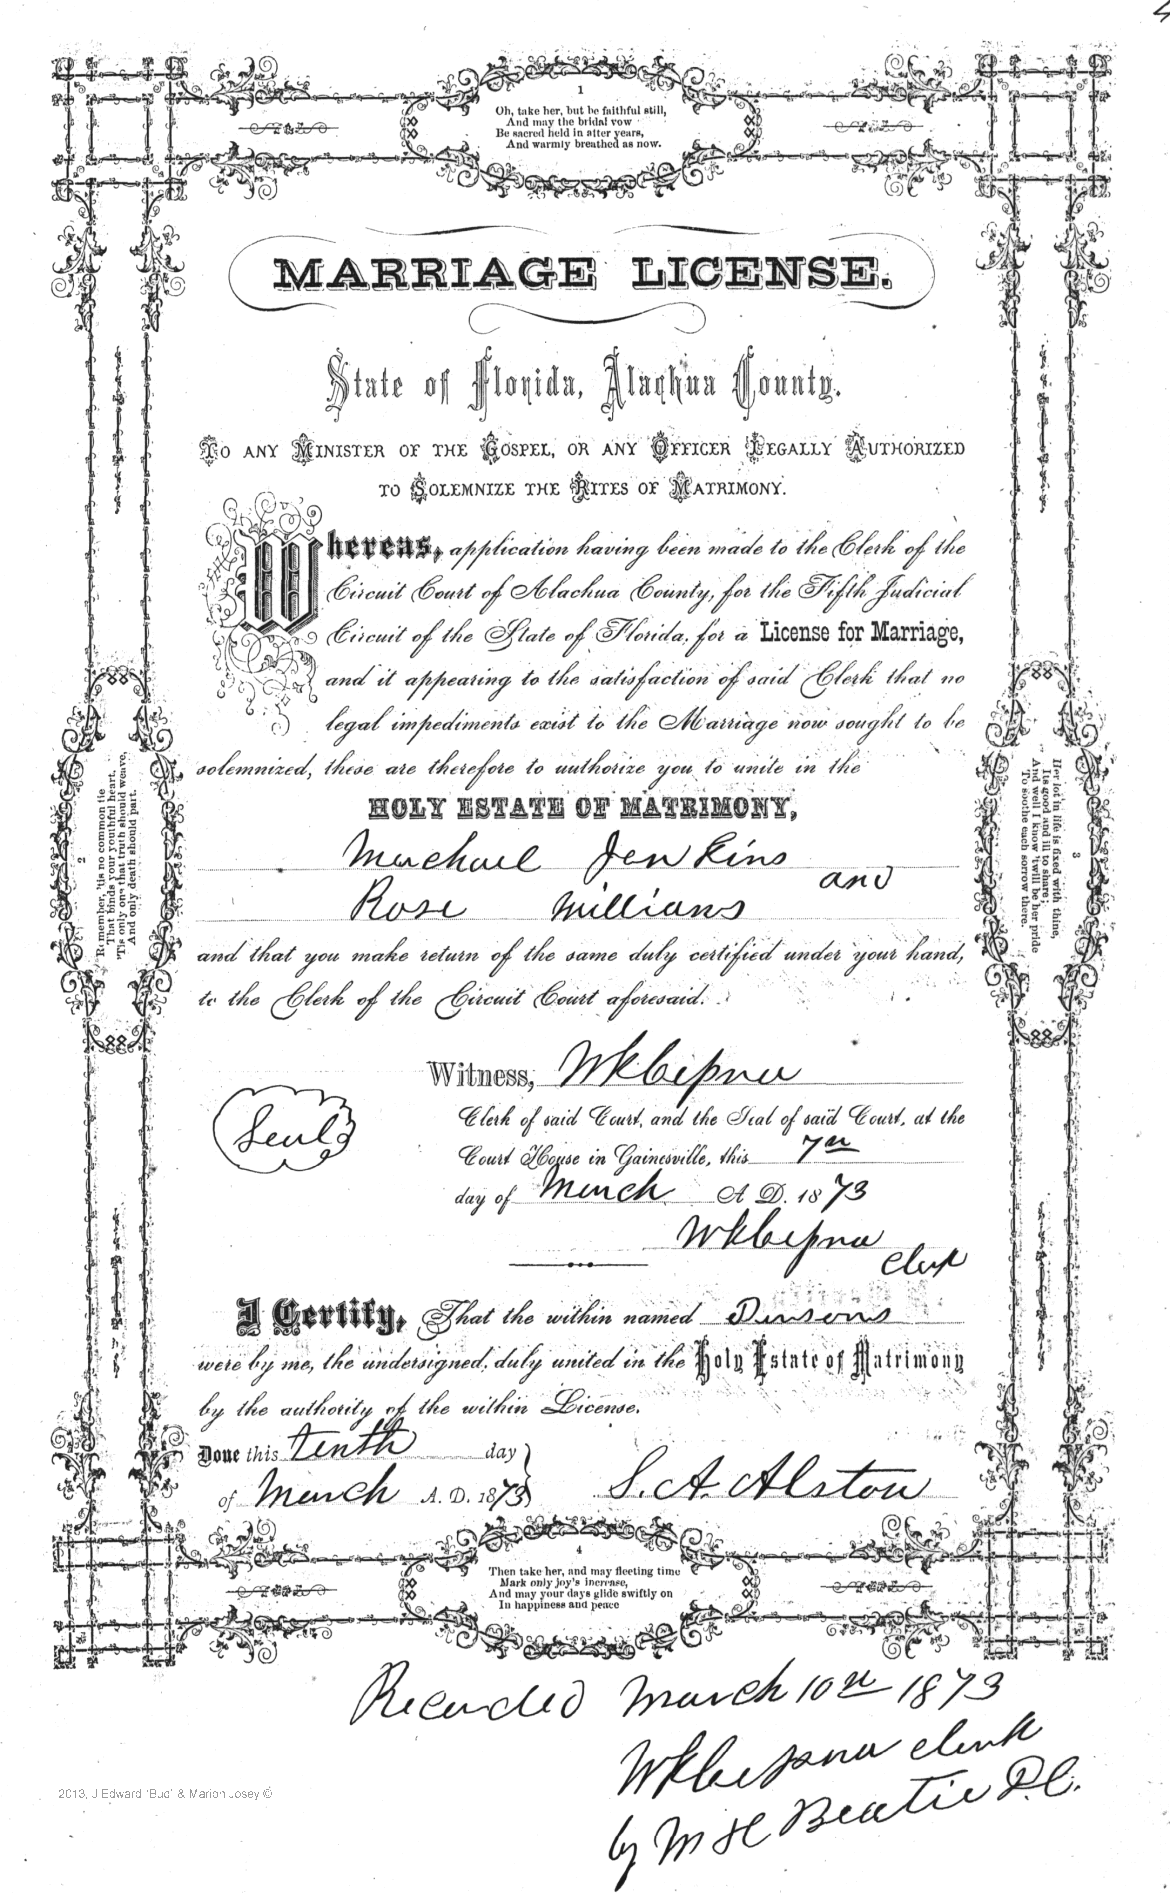 1
Oh, take her, but be faithful still,
And may the bridal vow
Be sacred held in after years,
And warmly breathed as now.
MARRIAGE LICENSE.
State of Florida, Alachua County.
TO ANY MINISTER OF THE GOSPEL, OR ANY OFFICER LEGALLY AUTHORIZED
TO SOLEMNIZE THE RITES OF MATRIMONY.
Whereas, application having been made to the Clerk of the
Circuit Court of Alachua County, for the Fifth Judicial
Circuit of the State of Florida, for a License for Marriage,
and it appearing to the satisfaction of said Clerk that no
legal impediments exist to the Marriage now sought to be
solemnized, these are therefore to authorize you to unite in the
HOLY ESTATE OF MATRIMONY,
Michael Jenkins
and
Rose Williams
and that you make return of the same duly certified under your hand,
to the Clerk of the Circuit Court aforesaid.
2
Remember, 'tis no common tie
That binds your youthful heart,
'Tis only one that truth should weave,
And only death should part.
3
Her lot in life is fixed with thine,
Its good and ill to share;
And well I know 'twill be her pride
To soothe each sorrow there.
Witness, W K Cessna
Seal
Clerk of said Court, and the Seal of said Court, at the
Court House in Gainesville, this 7th
day of March A D. 1873
W K Cessna
Clerk
I Certify, That the within named Persons
were by me, the undersigned, duly united in the Holy Estate of Matrimony
by the authority of the within License.
Done this tenth day
of March A. D. 1873
S. A. Alston
4
Then take her, and may fleeting time
Mark only joy's increase,
And may your days glide swiftly on
In happiness and peace
Recorded March 10th 1873
W K Cessna Clerk
by M H Beatie D.C.
2013, J Edward "Bud" & Marion Josey ©